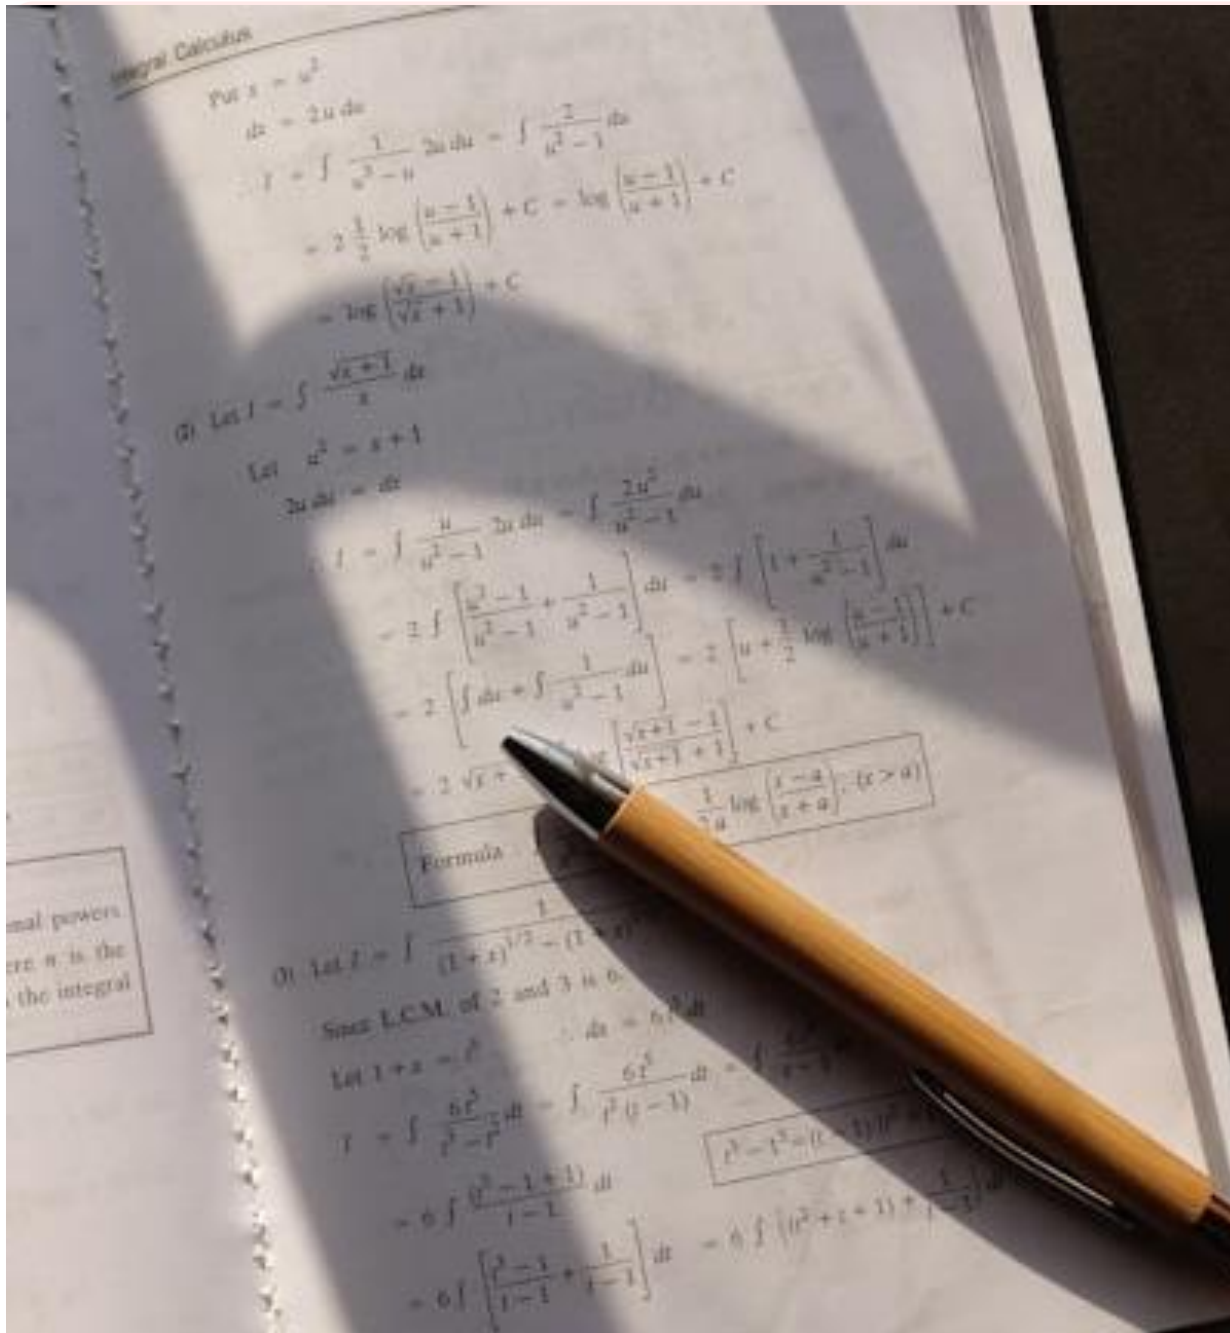 Integral Calculus
Put x = u²
dx = 2u du
∴ I = ∫ 1/(u² − u) 2u du = ∫ 2/(u² − 1) du
= 2 1/2 log ((u − 1)/(u + 1)) + C = log ((u − 1)/(u + 1)) + C
= log ((√x − 1)/(√x + 1)) + C
(2) Let I = ∫ √(x + 1)/x dx
Let u² = x + 1
2u du = dx
∴ I = ∫ u/(u² − 1) 2u du = ∫ 2u²/(u² − 1) du
= 2 ∫ [(u² − 1)/(u² − 1) + 1/(u² − 1)] du = 2 ∫ [1 + 1/(u² − 1)] du
= 2 [∫ du + ∫ 1/(u² − 1) du] = 2 [u + 1/2 log ((u − 1)/(u + 1))] + C
= 2 √x + [(√x+1 − 1)/(√x+1 + 1)] + C
Formula 1/2a log ((x − a)/(x + a)), (x > a)
(3) Let I = ∫ 1/(1 + x)^1/2 − (1 + x)
Since L.C.M. of 2 and 3 is 6.
Let 1 + x = ∴ dx = 6t⁵ dt
I = ∫ 6t⁵/(t³ − t²) dt = ∫ 6t⁵/(t² (t − 1)) dt = ∫
t³ − 1³ = (t − 1) (t²
= 6 ∫ (t³ − 1 + 1)/(t − 1) dt
= 6 ∫ [(t³ − 1)/(t − 1) + 1/(t − 1)] dt = 6 ∫ ((t² + t + 1) + 1/(t − 1)) dt
nal powers
ere n is the
the integral